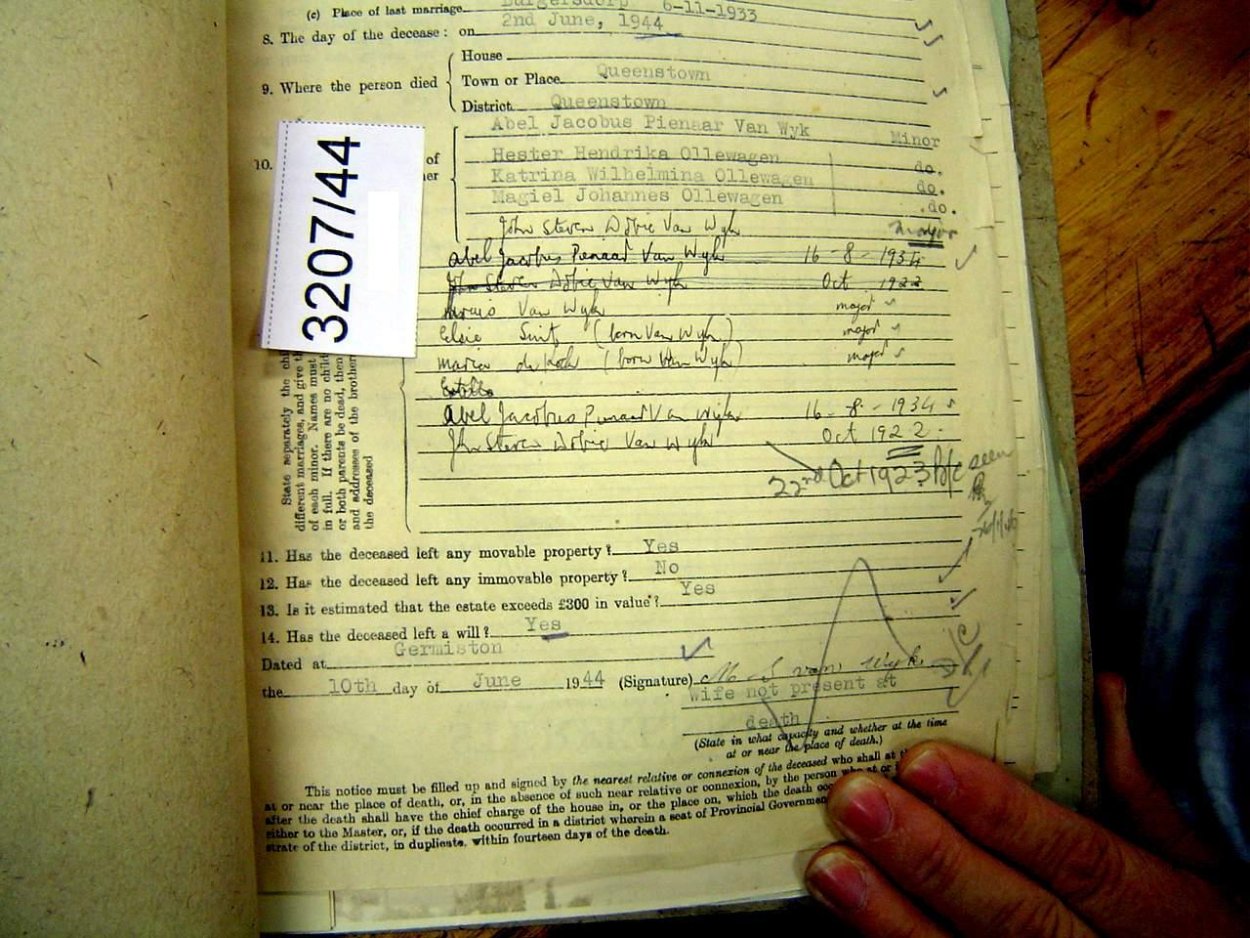 (c) Place of last marriage Burgersdorp 6-11-1933
8. The day of the decease: on 2nd June, 1944
House
9. Where the person died
Town or Place Queenstown
District Queenstown
3207/44
10.
of
her
Abel Jacobus Pienaar Van Wyk Minor
Hester Hendrika Ollewagen do.
Katrina Wilhelmina Ollewagen do.
Magiel Johannes Ollewagen do.
John Steven Dobie Van Wyk major
Abel Jacobus Pienaar Van Wyk 16-8-1934
John Steven Dobie Van Wyk Oct 1922
Van Wyk major
Elsie Smit (born Van Wyk) major
Maria de Kock (born Van Wyk) major
Abel Jacobus Pienaar Van Wyk 16-8-1934
John Steven Dobie Van Wyk Oct 1922
22nd Oct 1923 b/c seen
State separately the chi
different marriages, and give th
of each minor. Names must
in full. If there are no child
or both parents be dead, then
and addresses of the brother
the deceased
11. Has the deceased left any movable property? Yes
12. Has the deceased left any immovable property? No
13. Is it estimated that the estate exceeds £300 in value? Yes
14. Has the deceased left a will? Yes
Dated at Germiston
the 10th day of June 1944 (Signature) M S van Wyk
Wife not present at
death
(State in what capacity and whether at the time
at or near the place of death.)
This notice must be filled up and signed by the nearest relative or connexion of the deceased who shall at th
at or near the place of death, or, in the absence of such near relative or connexion, by the person who at or i
after the death shall have the chief charge of the house in, or the place on, which the death occ
either to the Master, or, if the death occurred in a district wherein a seat of Provincial Governmen
strate of the district, in duplicate, within fourteen days of the death.